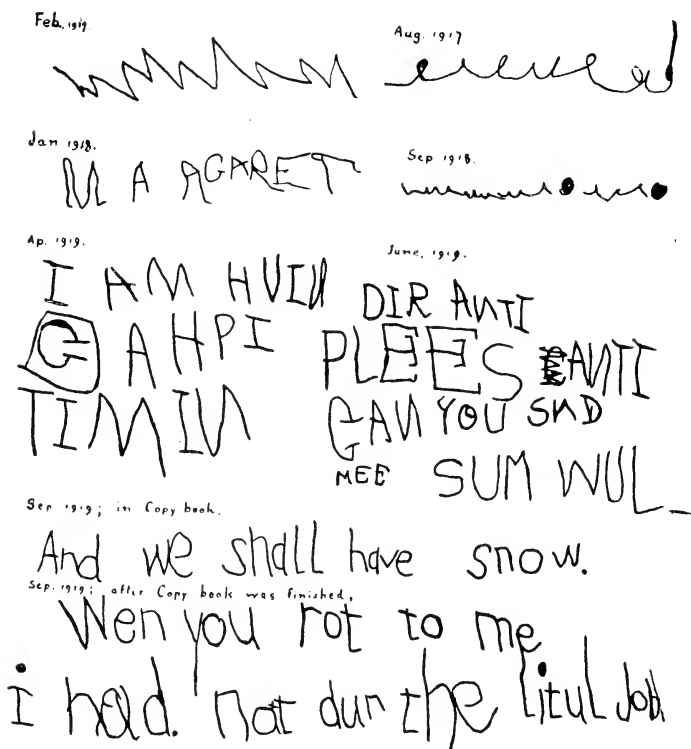 Feb. 1919.
Aug. 1917
Jan 1918.
MARGARET
Sep 1918.
Ap. 1919.
I AM HVIN
G A HPI
TIMIN
June, 1919.
DIR ANTI
PLEES ANTI
CAN YOU SND
MEE SUM WUL
Sep 1919; in Copy book.
And we shall have snow.
Sep. 1919; after Copy book was finished.
Wen you rot to me
i had. nat dun the litul Job.